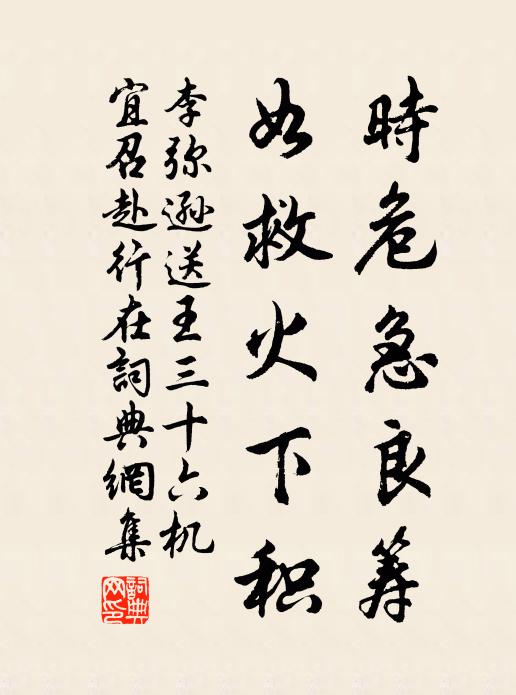 時危急良筹
如救火下积
李弥逊送王三十六机
宜召赴行在詞典網集
詞典网印